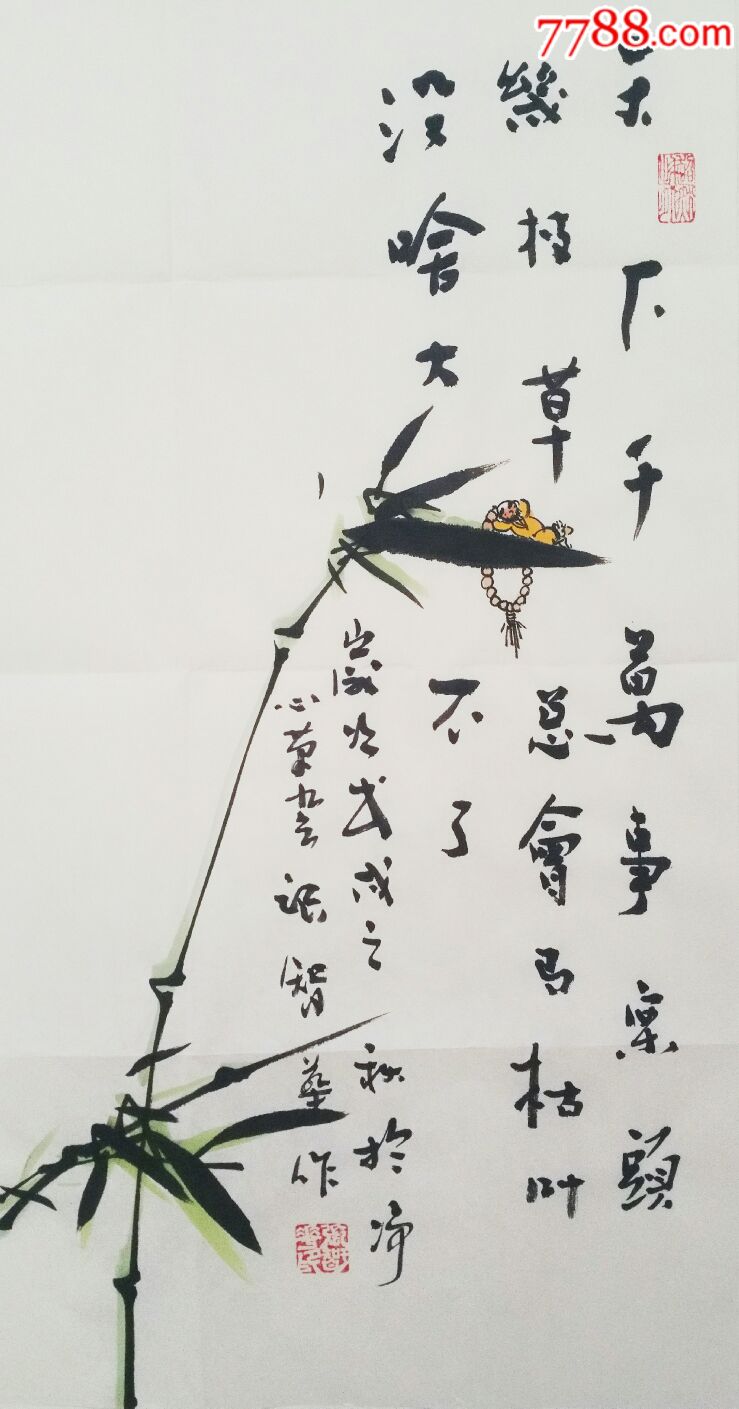 7788.com
天下千萬事案頭
幾枝草总會有枯叶
没啥大不了
歲次戊戌之秋於净
心草堂張智華作